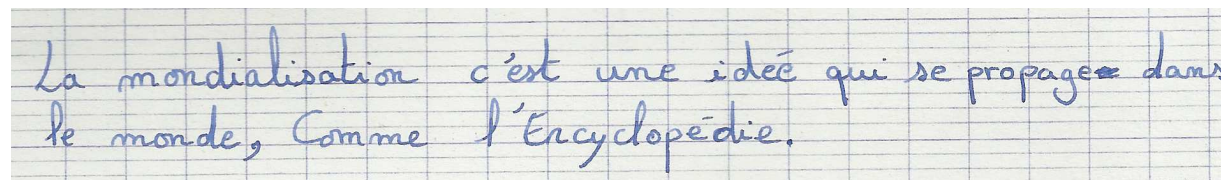 La mondialisation c'est une idée qui se propage dans
le monde, Comme l'Encyclopédie.